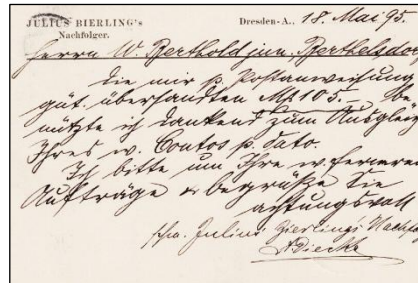 JULIUS BIERLING's
Nachfolger.
Dresden-A., 18. Mai 95.
Herrn W. Berthold jun., Berthelsdorf
Die mir p. Postanweisung
güt. übersandten Mk 105.– be
nützte ich dankend zum Ausgleich
Ihres w. Contos p. dato.
Ich bitte um Ihre w. ferneren
Aufträge & begrüße Sie
achtungsvoll
Julius Bierling's Nachf